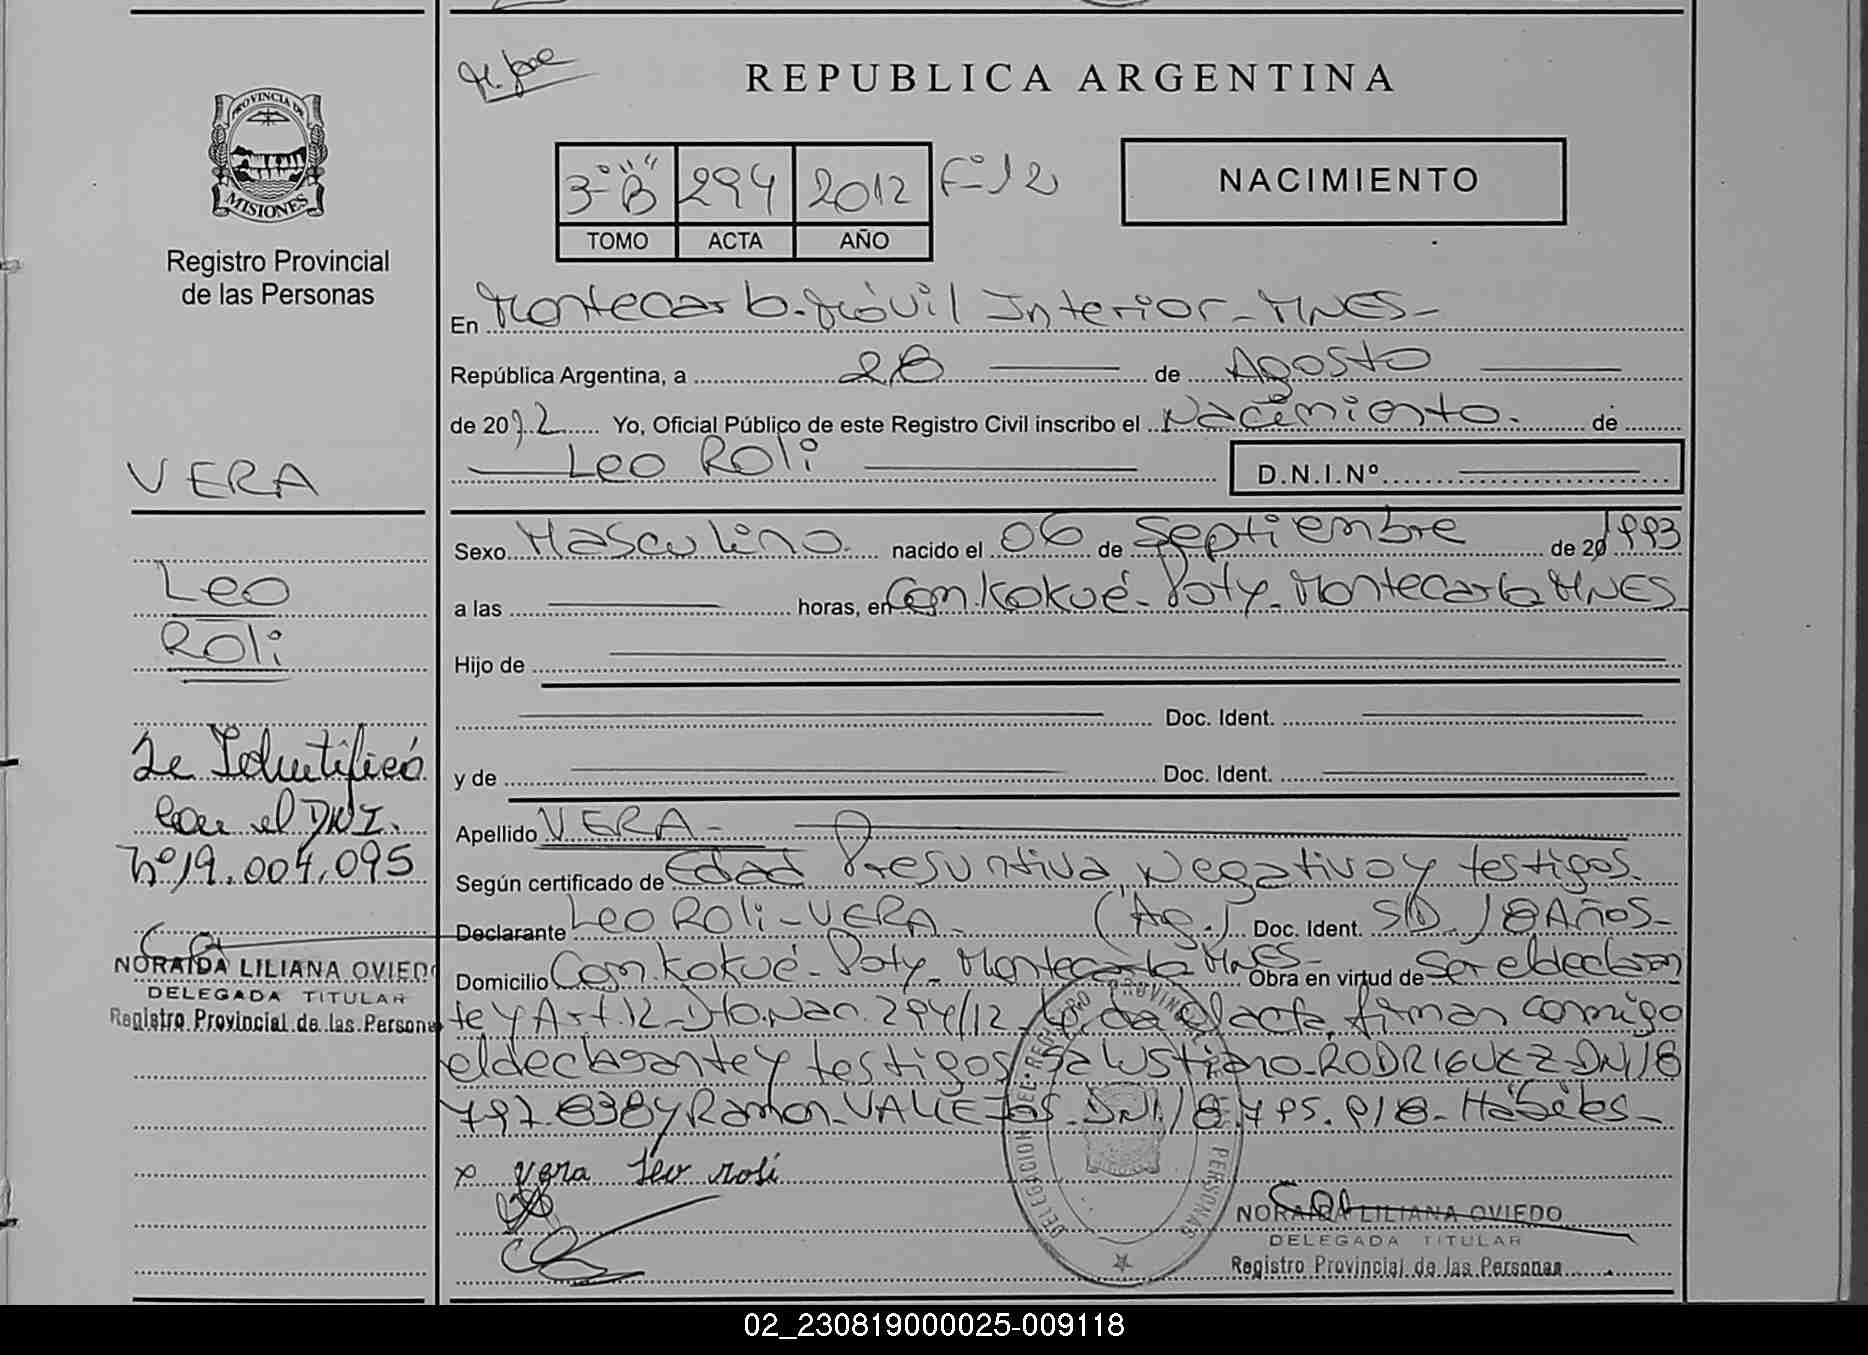 REPUBLICA ARGENTINA
PROVINCIA DE
MISIONES
Registro Provincial
de las Personas
3-º "B" 294 2012 Fº 12
TOMO ACTA AÑO
NACIMIENTO
En Montecarlo. Móvil Interior - MNES-
República Argentina, a 28 de Agosto
de 2012 Yo, Oficial Público de este Registro Civil inscribo el Nacimiento. de
Leo Roli D.N.I.Nº
VERA
Leo
Roli
Sexo Masculino. nacido el 06 de Septiembre de 20 1993
a las horas, en Com. Kokué-Poty-Montecarlo MNES
Hijo de
Doc. Ident.
y de Doc. Ident.
Apellido VERA-
Según certificado de Edad Presuntiva, Negativo y testigos.
Declarante Leo Roli-VERA- (Ag.) Doc. Ident. S/D. 18 Años-
Domicilio Com. Kokué-Poty-Montecarlo MNES- Obra en virtud de Ser el declaran
te y Art. 12- Dto. Nac. 294/12 Leída el acta, firman conmigo
el declarante y testigos Salustiano-RODRIGUEZ-DNI 18
797.838 y Ramon-VALLEJOS-DNI 18.795.918-Hábiles-
Se Identificó
con el DNI.
nº 19.004.095
NORAIDA LILIANA OVIEDO
DELEGADA TITULAR
Registro Provincial de las Persona
x Vera Leo roli
DELEGACION DEL REGISTRO PROVINCIAL DE PERSONAS
NORAIDA LILIANA OVIEDO
DELEGADA TITULAR
Registro Provincial de las Personas
02_230819000025-009118